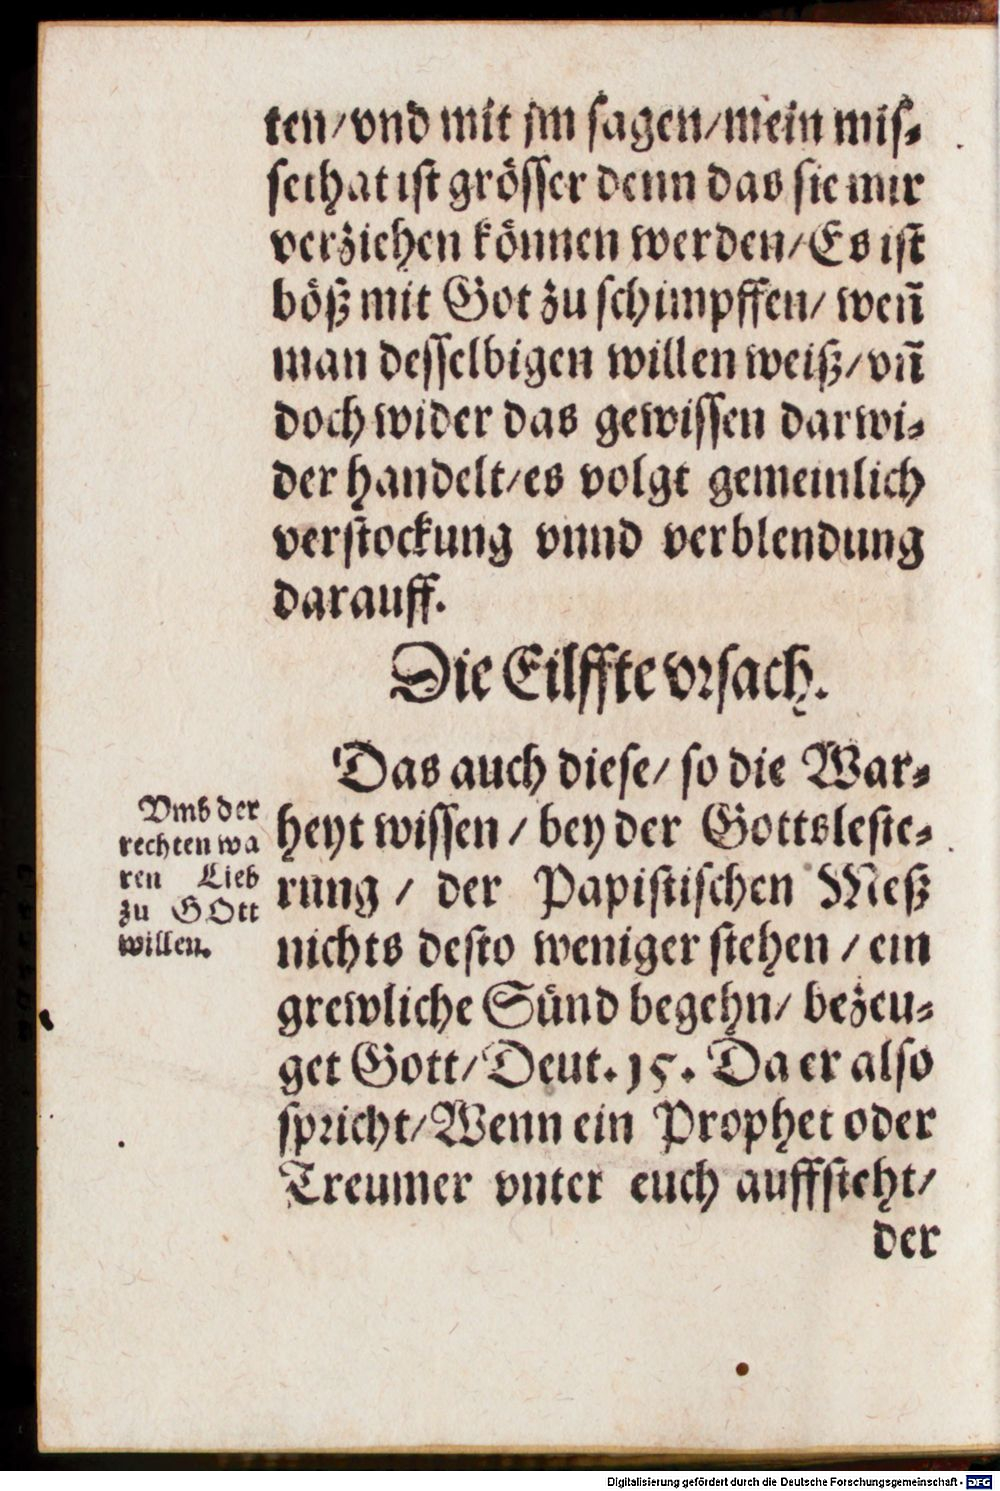 ten/vnd mit jm sagen/mein mis-
sethat ist grösser denn das sie mir
verziehen können werden/Es ist
böß mit Got zu schimpffen/ weñ
man desselbigen willen weiß/vñ
doch wider das gewissen darwi-
der handelt/es volgt gemeinlich
verstockung vnnd verblendung
darauff.
Die Eilffte vrsach.
Das auch diese/ so die War-
heyt wissen / bey der Gottsleste-
rung / der Papistischen Meß
nichts desto weniger stehen / ein
grewliche Sünd begehn/ bezeu-
get Gott/Deut. 15. Da er also
spricht/Wenn ein Prophet oder
Treumer vnter euch auffsteht/
der
Vmb der
rechten wa
ren Lieb
zu GOtt
willen.
Digitalisierung gefördert durch die Deutsche Forschungsgemeinschaft - DFG